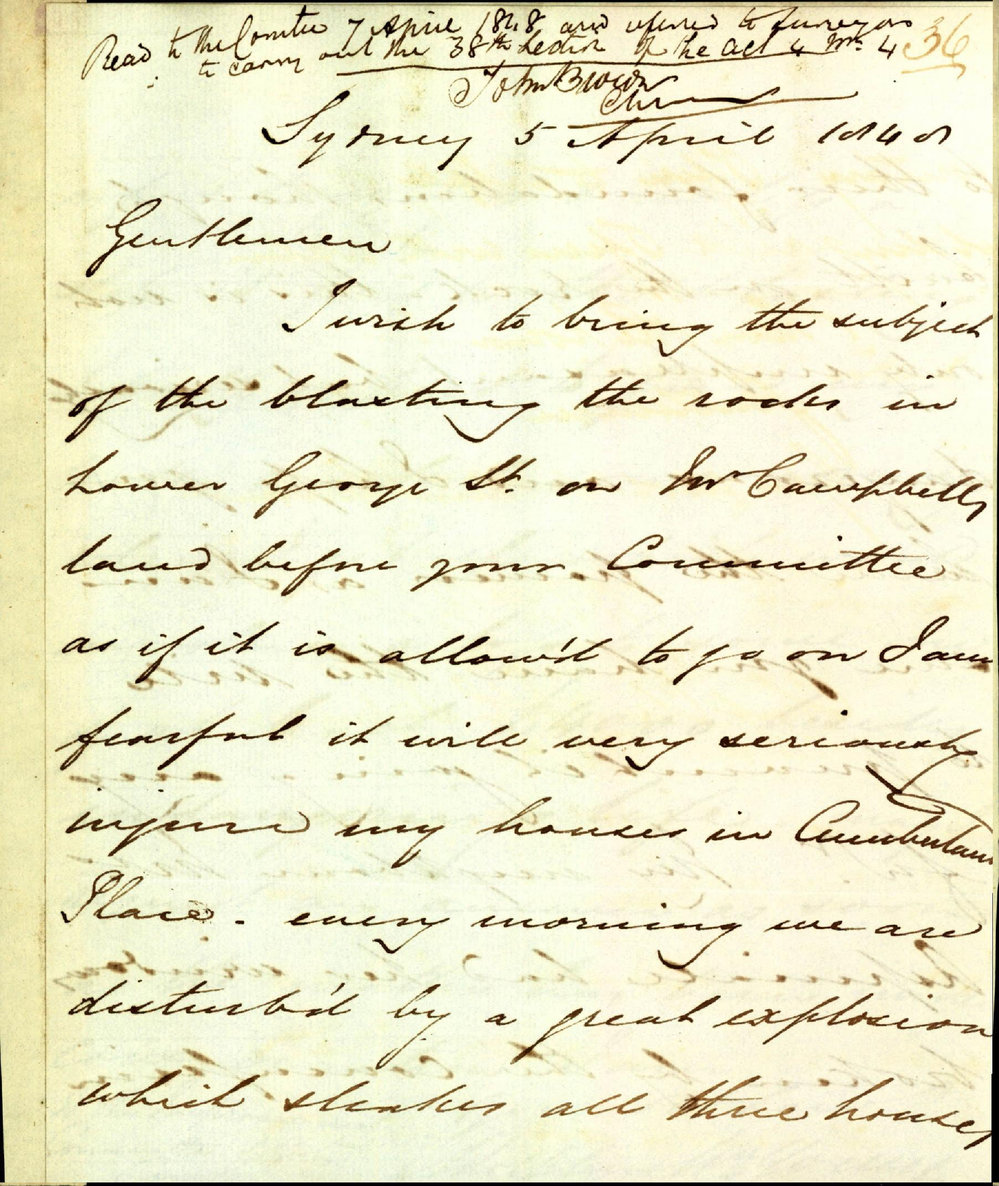 Read to the Comtee 7 April 1848 and referred to Surveyors
to carry out the 38th Section of the Act 4 Wm. 4
36
John Brown
Sydney 5 April 1848
Gentlemen
I wish to bring the subject
of the blasting the rocks in
Lower George St. on Mr Campbells
land before your Committee
as if it is allow'd to go on I am
fearful it will very seriously
injure my houses in Cumberland
Place - every morning we are
disturb'd by a great explosion
which shakes all three houses